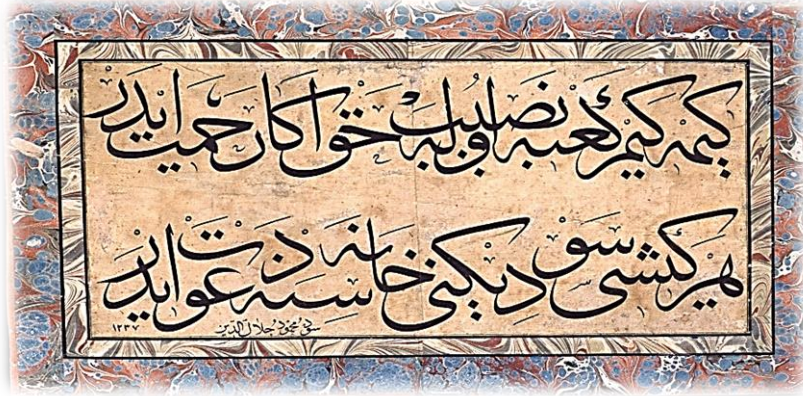 كيمه كيم كعبه نصيب اوله حق اكا رحمت ايدر
هر كشى سوديكنى خانه سنه دعوت ايدر
سوده محمود جلال الدين
١٢٣٧